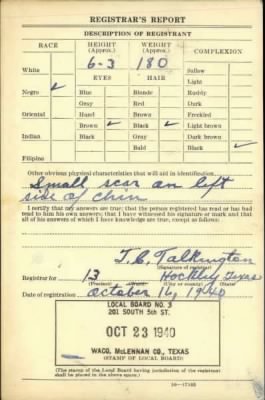 REGISTRAR'S REPORT
DESCRIPTION OF REGISTRANT
RACE HEIGHT (Approx.) WEIGHT (Approx.) COMPLEXION
6-3 180
White Sallow
EYES HAIR Light
Negro ✓ Blue Blonde Ruddy
Gray Red Dark
Oriental Hazel Brown Freckled
Brown ✓ Black ✓ Light brown
Indian Black Gray Dark brown
Bald Black ✓
Filipino
Other obvious physical characteristics that will aid in identification
Small scar on left
side of chin
I certify that my answers are true; that the person registered has read or has had
read to him his own answers; that I have witnessed his signature or mark and that
all of his answers of which I have knowledge are true, except as follows:
T. C. Talkington
(Signature of registrar)
Registrar for 13 Hockley Texas
(Precinct) (City or county) (State)
Date of registration October 16, 1940
LOCAL BOARD NO. 3
201 SOUTH 5th ST.
OCT 23 1940
WACO, McLENNAN CO., TEXAS
(STAMP OF LOCAL BOARD)
(The stamp of the Local Board having jurisdiction of the registrant shall be
placed in the above space.)